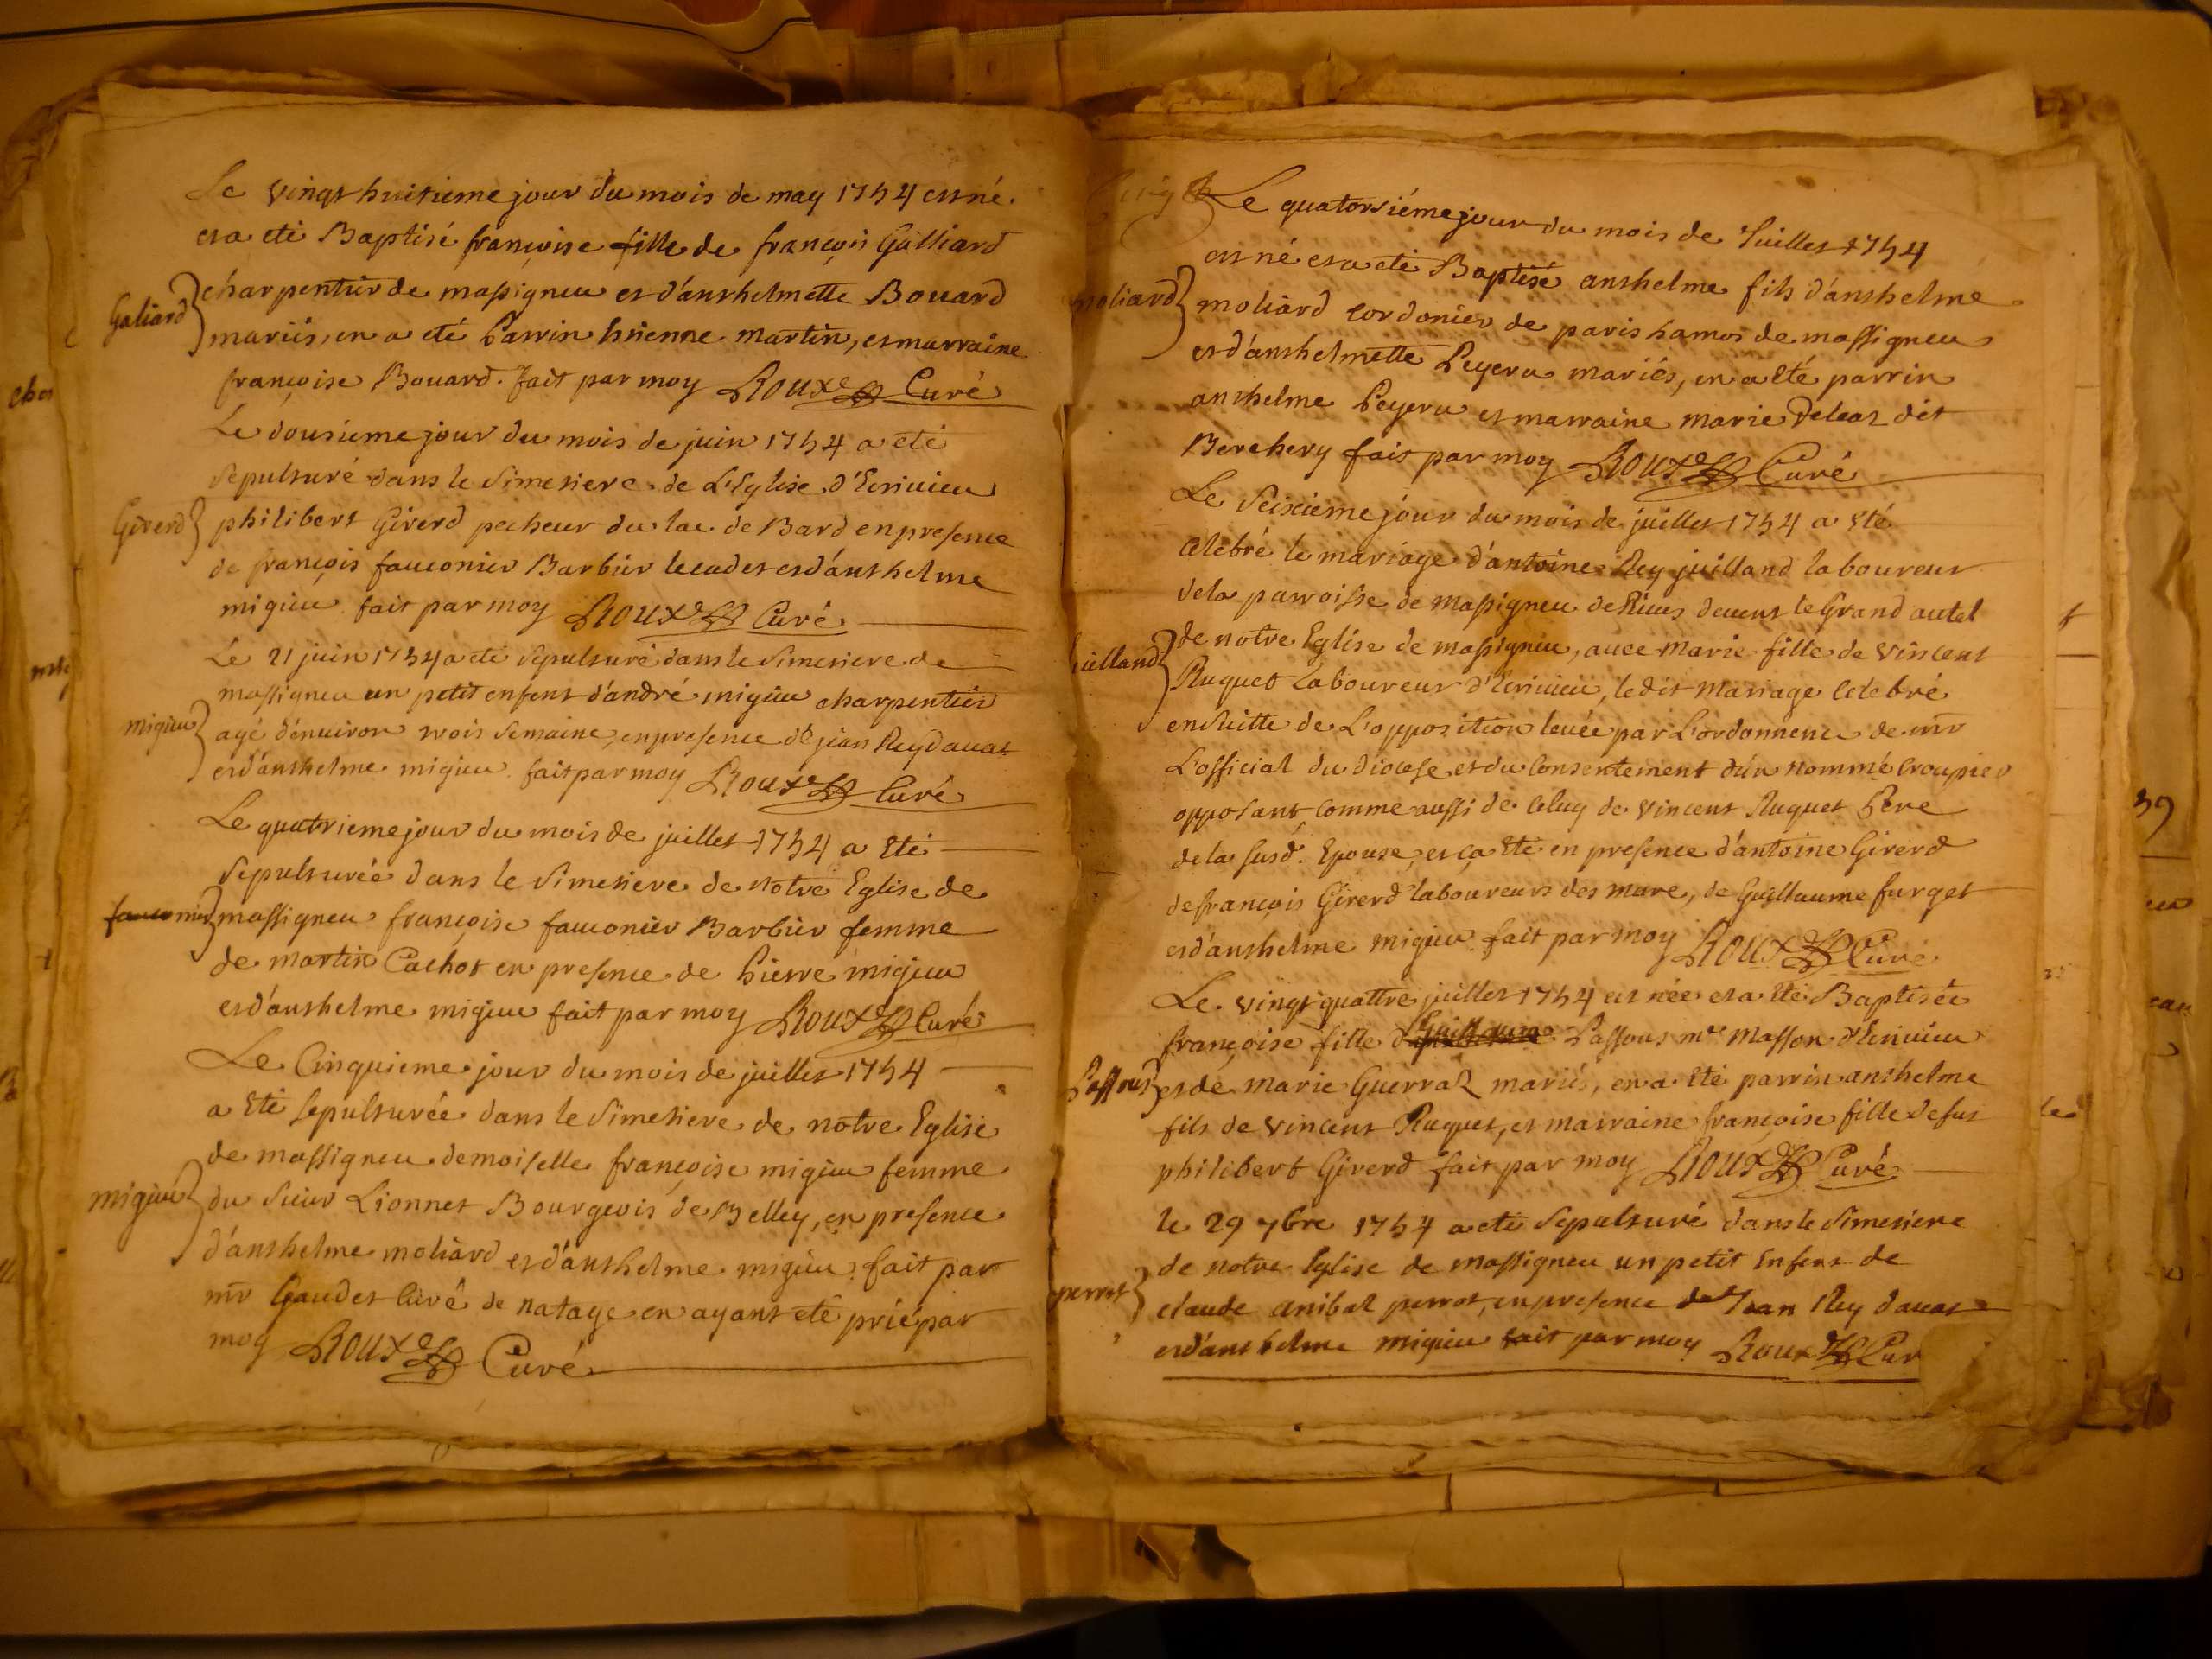 Le vingt huitieme jour du mois de may 1754 est né
et a eté Baptisé françoise fille de françois Galliard
Galiard } charpentier de massigneu et d'anthelmette Bouard
mariés, en a eté Parrin Etienne martin, et marraine
françoise Bouard. fait par moy Roux Curé
Le dousieme jour du mois de juin 1754 a eté
sepulturé dans le simetiere de L'Eglise d'Ecrivieu
Girerd } philibert Girerd pecheur du lac de Bard en presence
de françois fauconier Barbier le cadet et d'anthelme
migieu fait par moy Roux Curé
Le 21 juin 1754 a eté sepulturé dans le simetiere de
massigneu un petit enfent d'andré migieu charpentier
migieu } agé d'environ trois semaine, en presence de jean Rey davat
et d'anthelme migieu fait par moy Roux Curé
Le quatrieme jour du mois de juillet 1754 a Eté
sepulturée dans le simetiere de notre Eglise de
fauconier } massigneu françoise fauconier Barbier femme
de martin Cachot en presence de Pierre migieu
et d'anthelme migieu fait par moy Roux Curé
Le Cinquieme jour du mois de juillet 1754
a Eté sepulturée dans le simetiere de notre Eglise
de massigneu demoiselle françoise migieu femme
migieu } du sieur Lionnet Bourgeois de Belley, en presence
d'anthelme moliard et d'anthelme migieu fait par
mr Gaudet Curé de natage en ayant eté prié par
moy Roux Curé
Le quatorsiéme jour du mois de Juillet 1754
est né et a eté Baptisé anthelme fils d'anthelme
moliard } moliard cordonier de paris hamot de massigneu
et d'anthelmette Peyera mariés, en a Eté parrin
anthelme Peyera et marraine marie Deleaz dit
Berchery fait par moy Roux Curé
Le Seixieme jour du mois de juillet 1754 a Eté
Celebré le mariage d'antoine Rey juilland laboureur
de la parroisse de massigneu de Rives devent le Grand autel
juilland } de notre Eglise de massigneu, avec marie fille de vincent
Ruquet Laboureur d'Ecrivieu, le dit mariage Celebré
ensuitte de L'opposition levée par L'ordonnence de mr
L'official du diocese et du Consentement d'un nommé Croupier
opposant, comme aussi de Celuy de vincent Ruquet Pere
de la susd. Epouse, et ça Eté en presence d'antoine Girerd
de françois Girerd laboureurs des mure, de Guillaume furget
et d'anthelme migieu fait par moy Roux Curé
Le vingt quattre juillet 1754 est née et a Eté Baptisée
françoise fille de guillaume Passous me Masson d'Ecrivieu
Passous } et de marie Guerraz mariés, en a Eté parrin anthelme
fils de vincent Ruquet, et marraine françoise fille de fut
philibert Girerd fait par moy Roux Curé
le 29 7bre 1754 a eté sepulturé dans le simetiere
de notre Eglise de massigneu un petit Enfent de
perrot } claude anibal perrot, en presence de Jean Rey davat
et d'anthelme migieu fait par moy Roux Cur
39